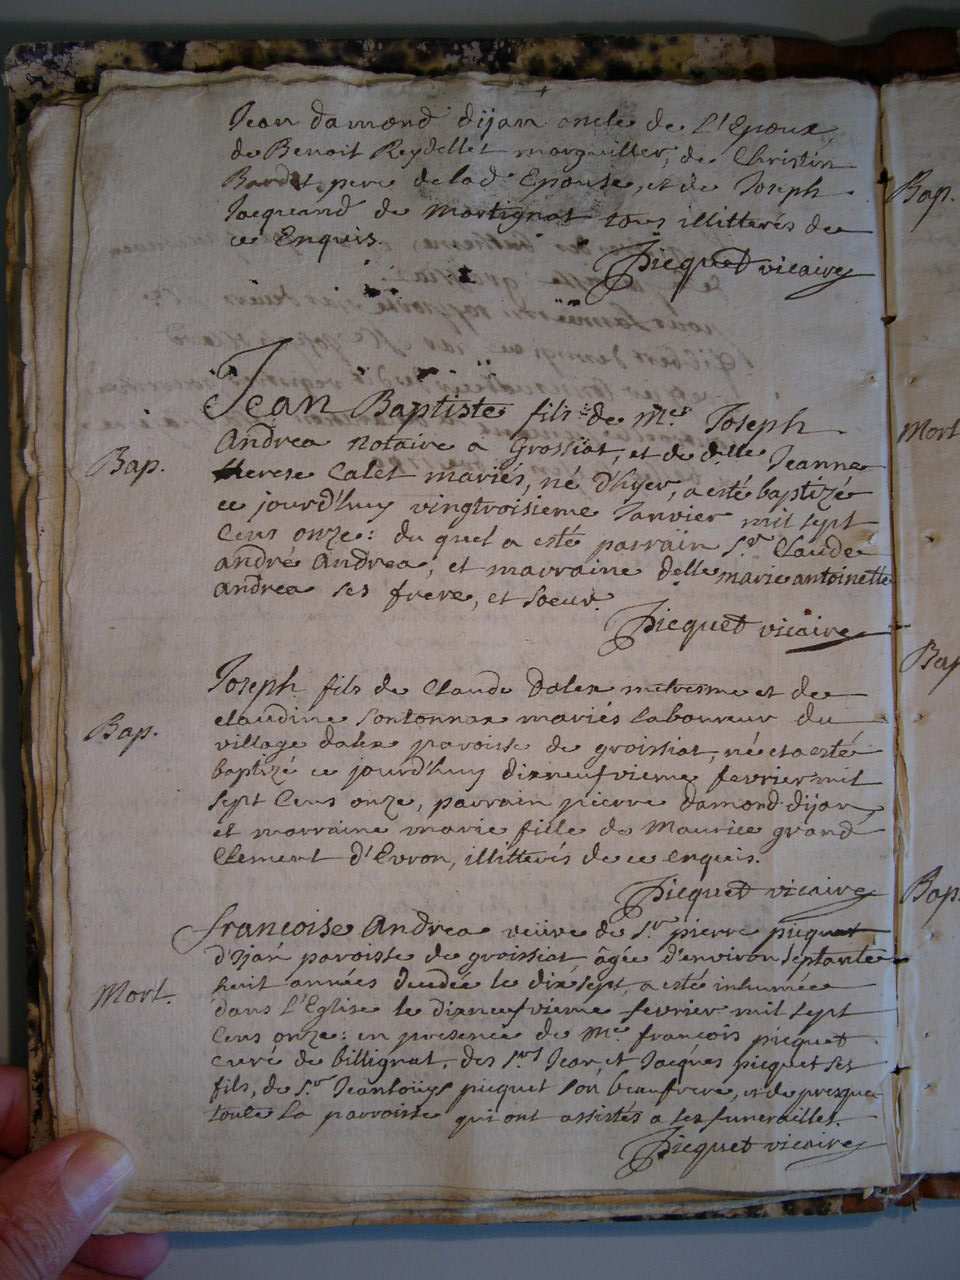 Jean damond dijan oncle de L'Epoux
de Benoit Reydellet marguillier, de Christin
Bardet pere de lad Epouse, et de Joseph
Jacquand de Martignat tous illitterés de
ce Enquis.
Picquet vicaire
Bap.
Jean Baptiste fils de Me Joseph
Andrea notaire a Grossiat, et de dlle Jeanne
therese Calet mariés, né d'hyer, a esté baptizé
ce jourd'huy vingtroisieme Janvier mil sept
Cens onze: du quel a esté parrain Sr Claude
andré Andrea, et marraine delle marie antoinette
Andrea ses frere, et soeur.
Picquet vicaire
Bap.
Joseph fils de Claude Dalex et de
Claudine Sontonnax mariés Laboureur du
village dalex paroisse de groissiat, né et a esté
baptizé ce jourd'huy dixneufvieme fevrier mil
sept Cens onze, parrain pierre damond dijan
et marraine marie fille de Maurice grand
Clement d'Evron, illitterés de ce enquis.
Picquet vicaire
Mort.
francoise Andrea veuve de Sr pierre picquet
d'Ijan paroisse de groissiat âgée d'environ septante
huit années decedée le dixsept, a esté inhumée
dans L'Eglise le dixneufvieme fevrier mil sept
Cens onze: en presence de Me françois picquet
curé de billignat, des Srs Jean, et Jacques picquet ses
fils, de Sr Jeanloüys picquet son beaufrere, et de presque
toute la parroisse qui ont assistés a ses funerailles.
Picquet vicaire
Bap.
Mort
Bap
Bap.